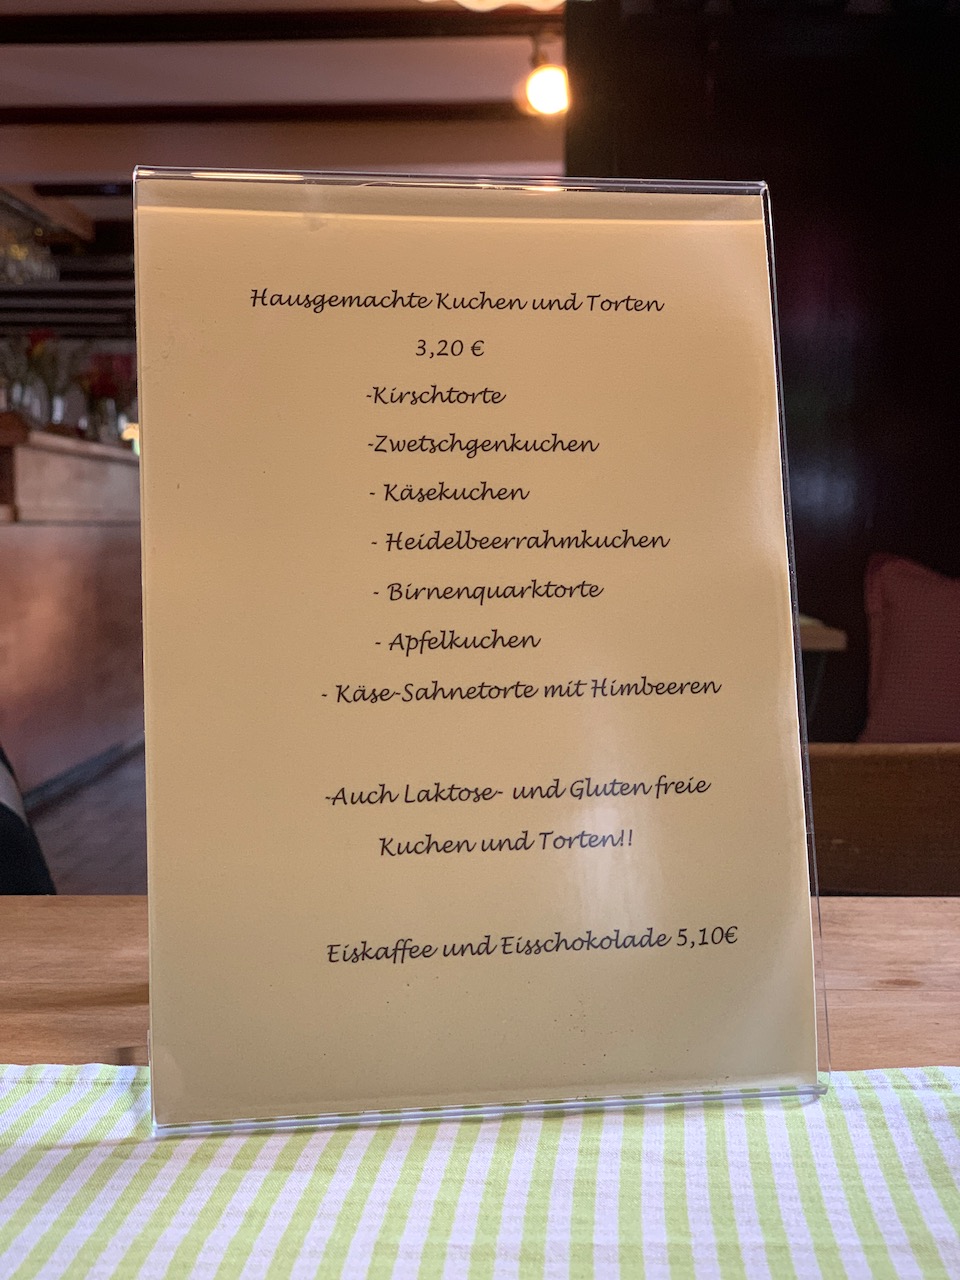 Hausgemachte Kuchen und Torten
3,20 €
-Kirschtorte
-Zwetschgenkuchen
- Käsekuchen
- Heidelbeerrahmkuchen
- Birnenquarktorte
- Apfelkuchen
- Käse-Sahnetorte mit Himbeeren
-Auch Laktose- und Gluten freie
Kuchen und Torten!!
Eiskaffee und Eisschokolade 5,10€